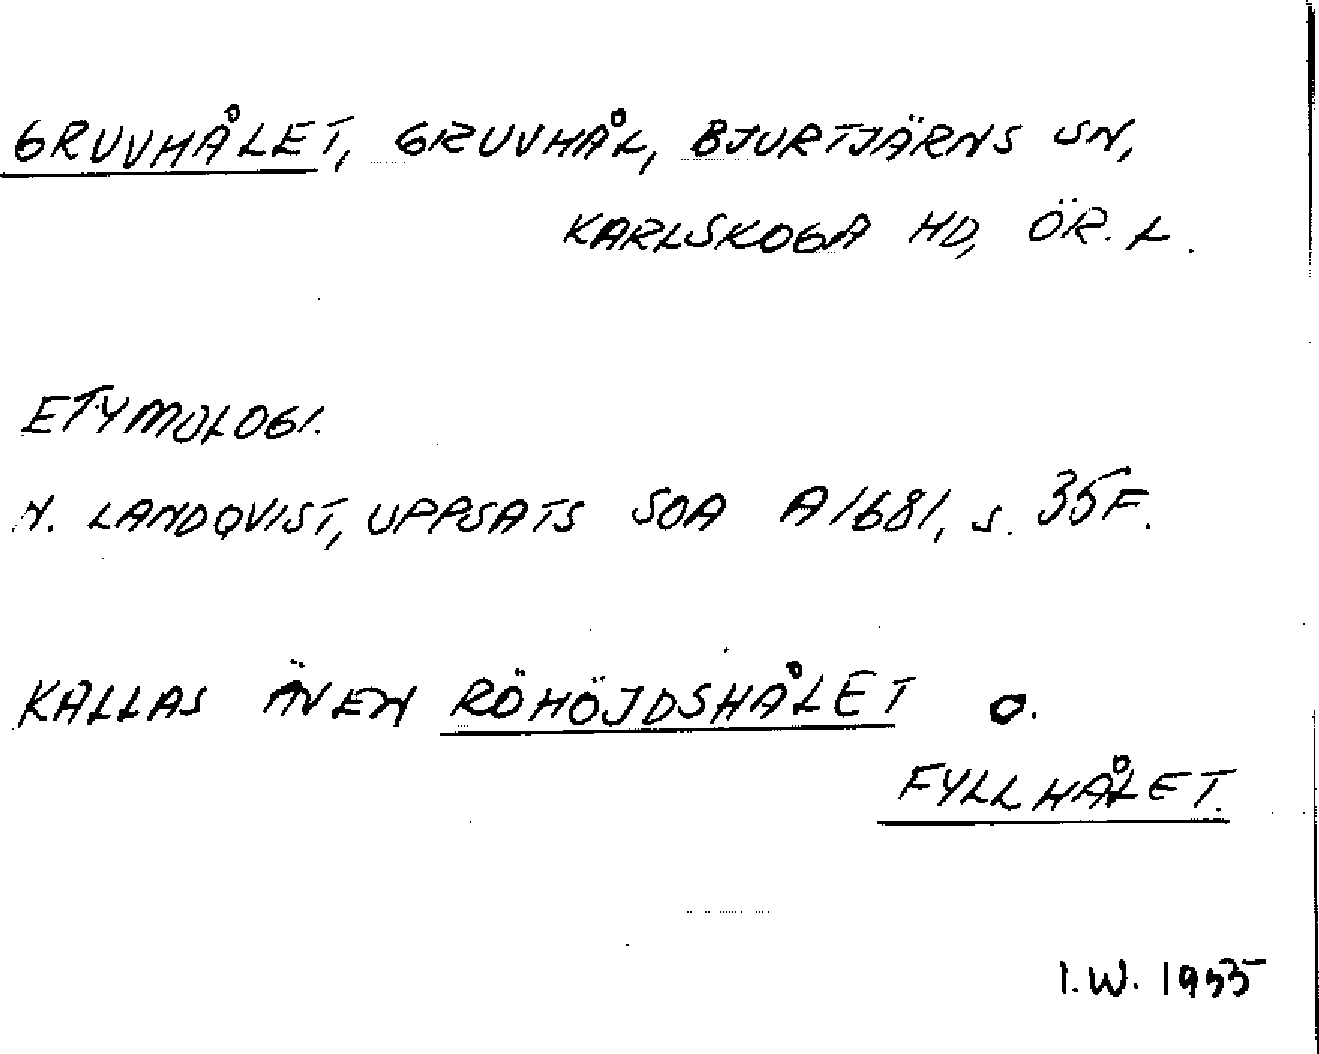 GRUVHÅLET, GRUVHÅL, BJURTJÄRNS SN,
KARLSKOGA HD, ÖR. L.
ETYMOLOGI.
N. LANDQVIST, UPPSATS SOA A1681, S. 35F.
KALLAS ÄVEN RÖHÖJDSHÅLET O.
FYLLHÅLET.
I.W. 1955